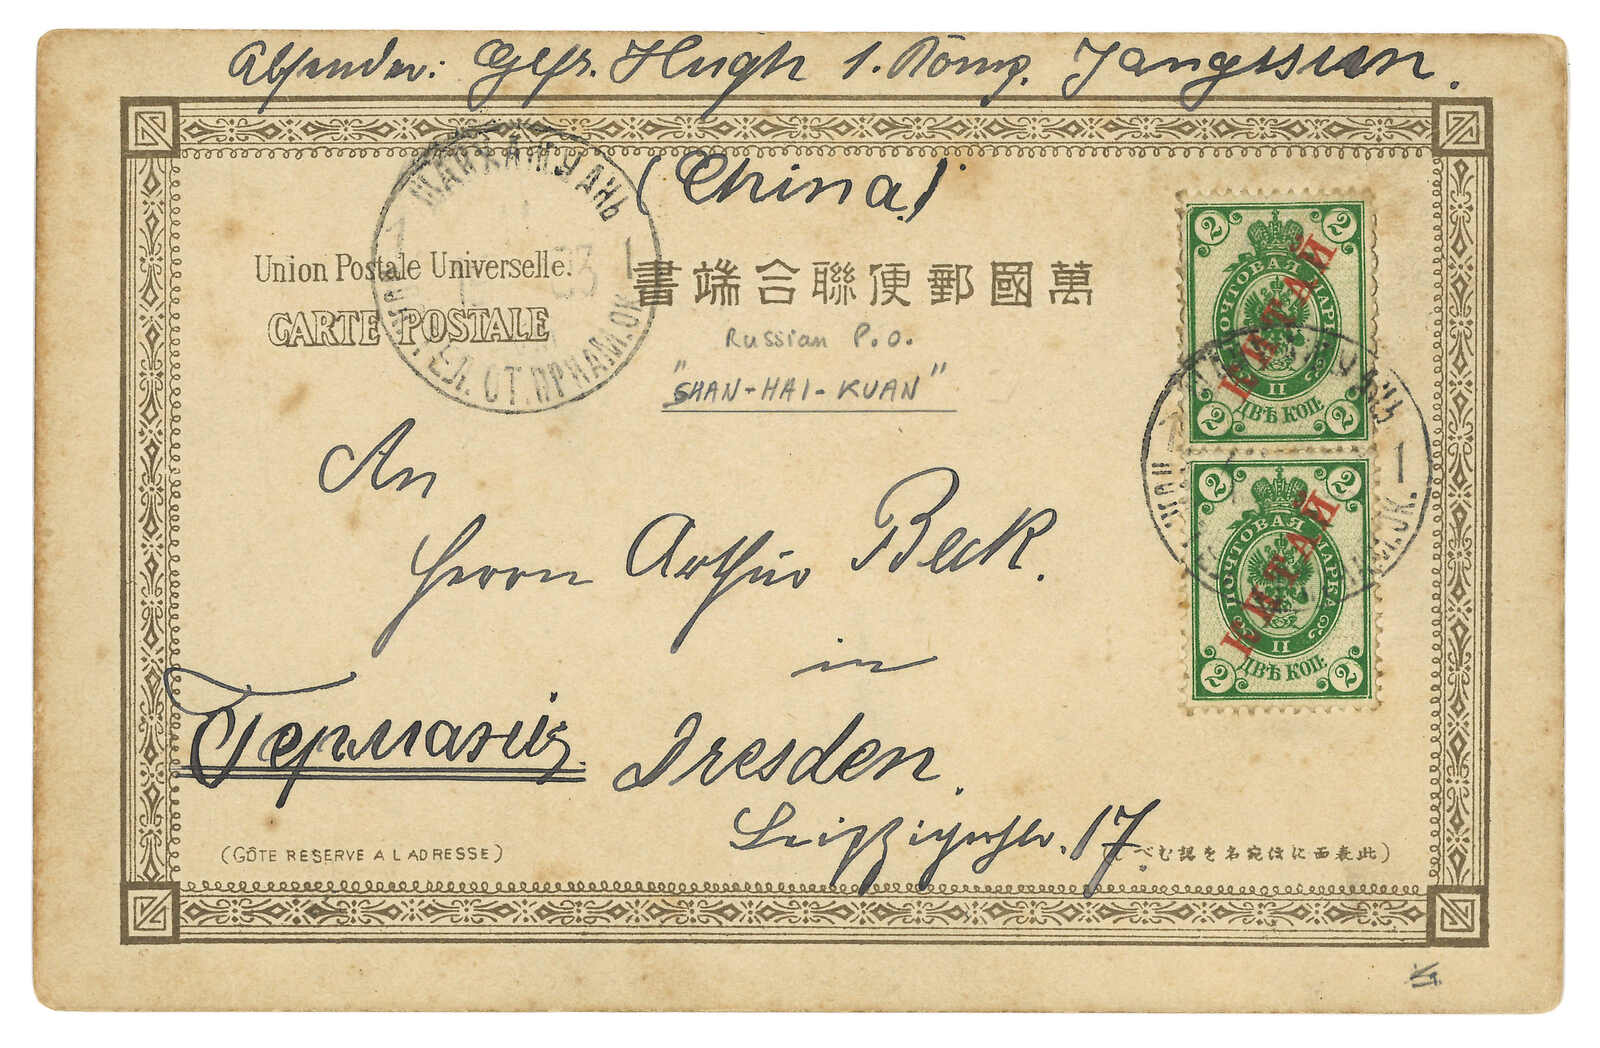 Absender: Gefr. Hugh 1. Komp. Jangtsun.
(China)
ШАНХАЙГУАНЬ
1 03 1
ПОЧ. ТЕЛ. ОТ. ПРИАМ. ОК.
Union Postale Universelle.
CARTE POSTALE
書端合聯便郵國萬
Russian P.O.
"SHAN-HAI-KUAN"
2 2
ПОЧТОВАЯ МАРКА
КИТАЙ
II
ДВѢ КОП.
2 2
1
2 2
ПОЧТОВАЯ МАРКА
КИТАЙ
II
ДВѢ КОП.
2 2
An
Herrn Arthur Beck.
in
Германія
Dresden.
Leipzigerstr. 17.
(GÔTE RESERVE A L ADRESSE)
(べむ認を名宛はに面表此)